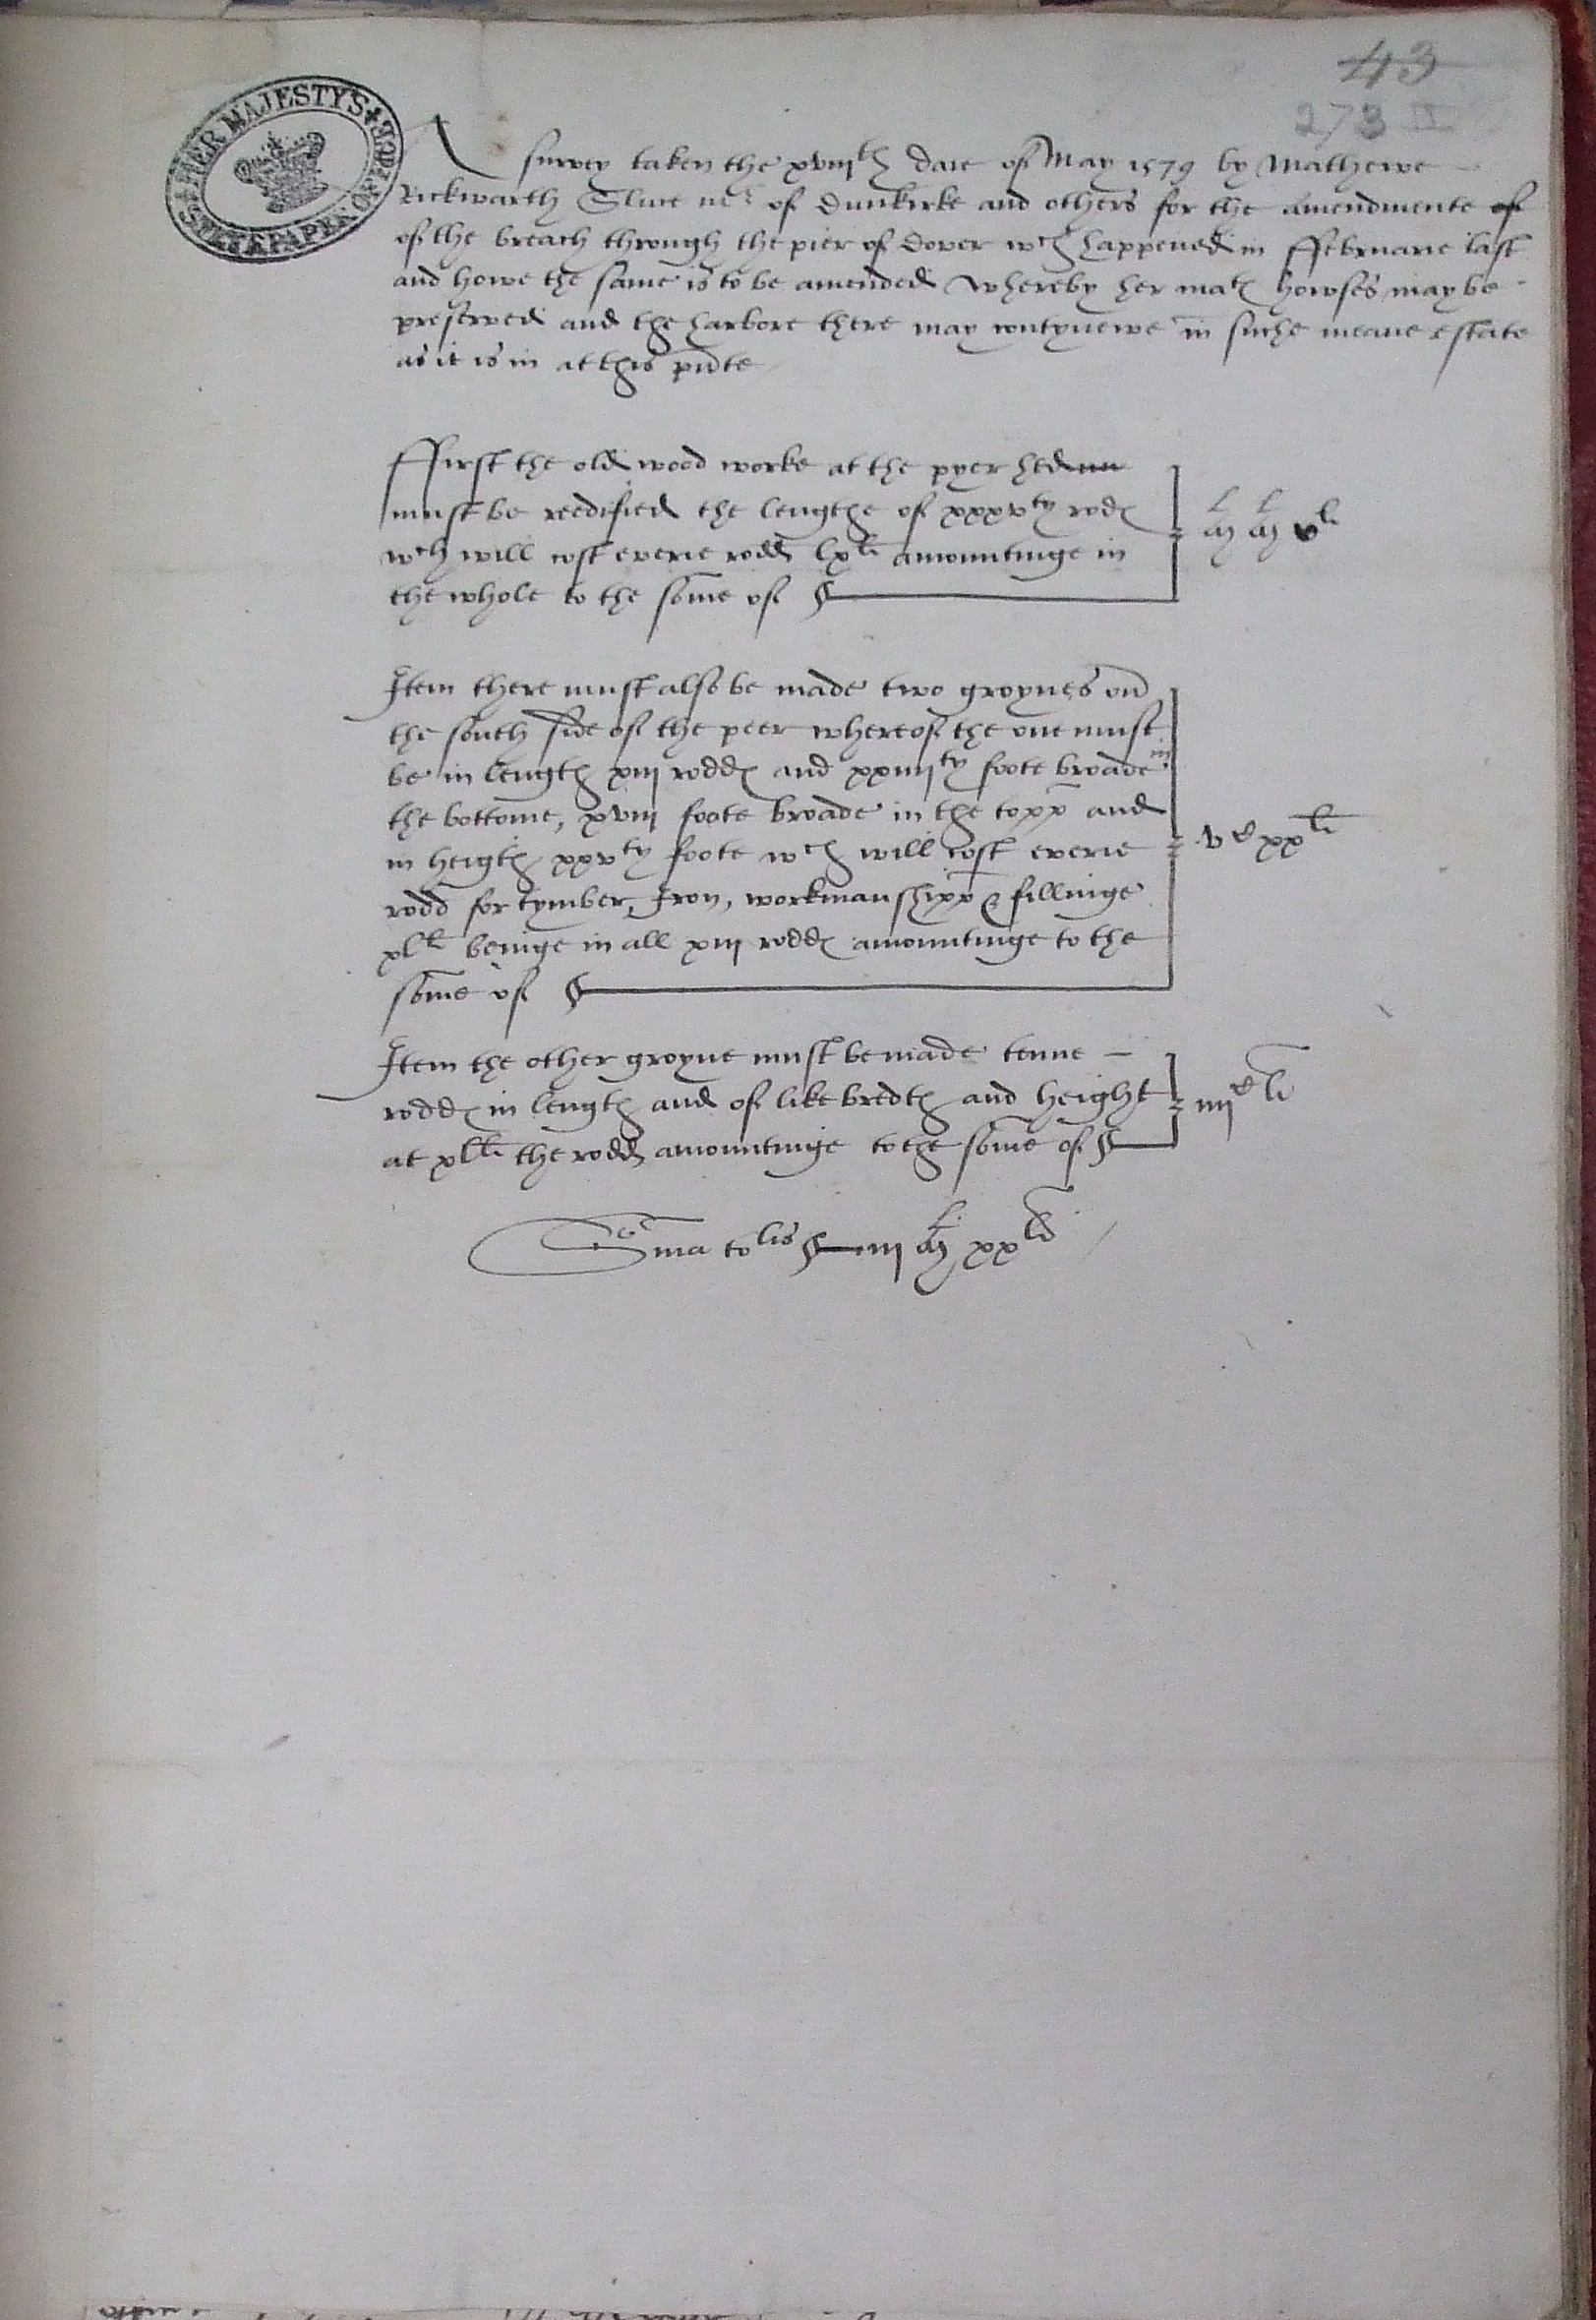 43
273 II
HER MAJESTY'S STATE PAPER OFFICE
A survey taken the xviijth daie of May 1579 by Mathewe
Rickwarth Sluce mr of Dunkirke and others for the amendmente of
of the breach through the pier of Dover wch happened in Ffebruarie last
and howe the same is to be amended Whereby her matis howses may be
preserved and the harbore there may contynewe in suche meane estate
as it is in at this pnte
Ffirst the old wood worke at the pyer hed
must be reedified the lengthe of xxxvty rodes
wch will cost everie rodd lxli amountinge in
the whole to the some of
Item there must also be made two groynes on
the south side of the peer whereof the one must
be in length xiij roddes and xxiiijty foote broade in
the bottome, xviij foote broade in the topp and
in heigth xxvty foote wch will cost everie
rodd for tymber, Iron, workmanshipp & fillinge
xlli beinge in all xiij roddes amountinge to the
some of
vc xxli
Item the other groyne must be made tenne
roddes in length and of like bredth and height
at xlli the rodd amountinge to the some of
iiijc li
Sma tolis iij xxli